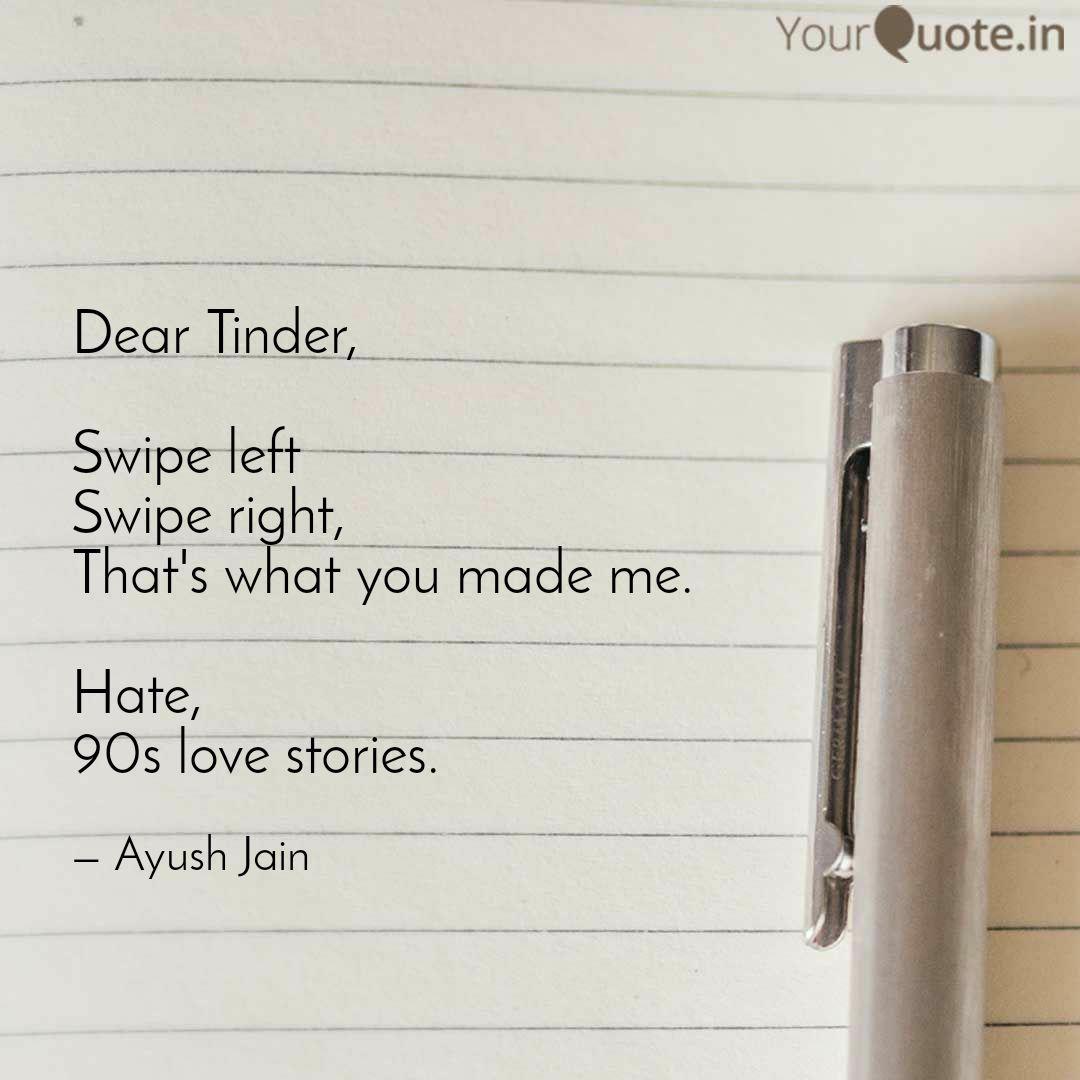 YourQuote.in
Dear Tinder,
Swipe left
Swipe right,
That's what you made me.
Hate,
90s love stories.
– Ayush Jain
GERMANY